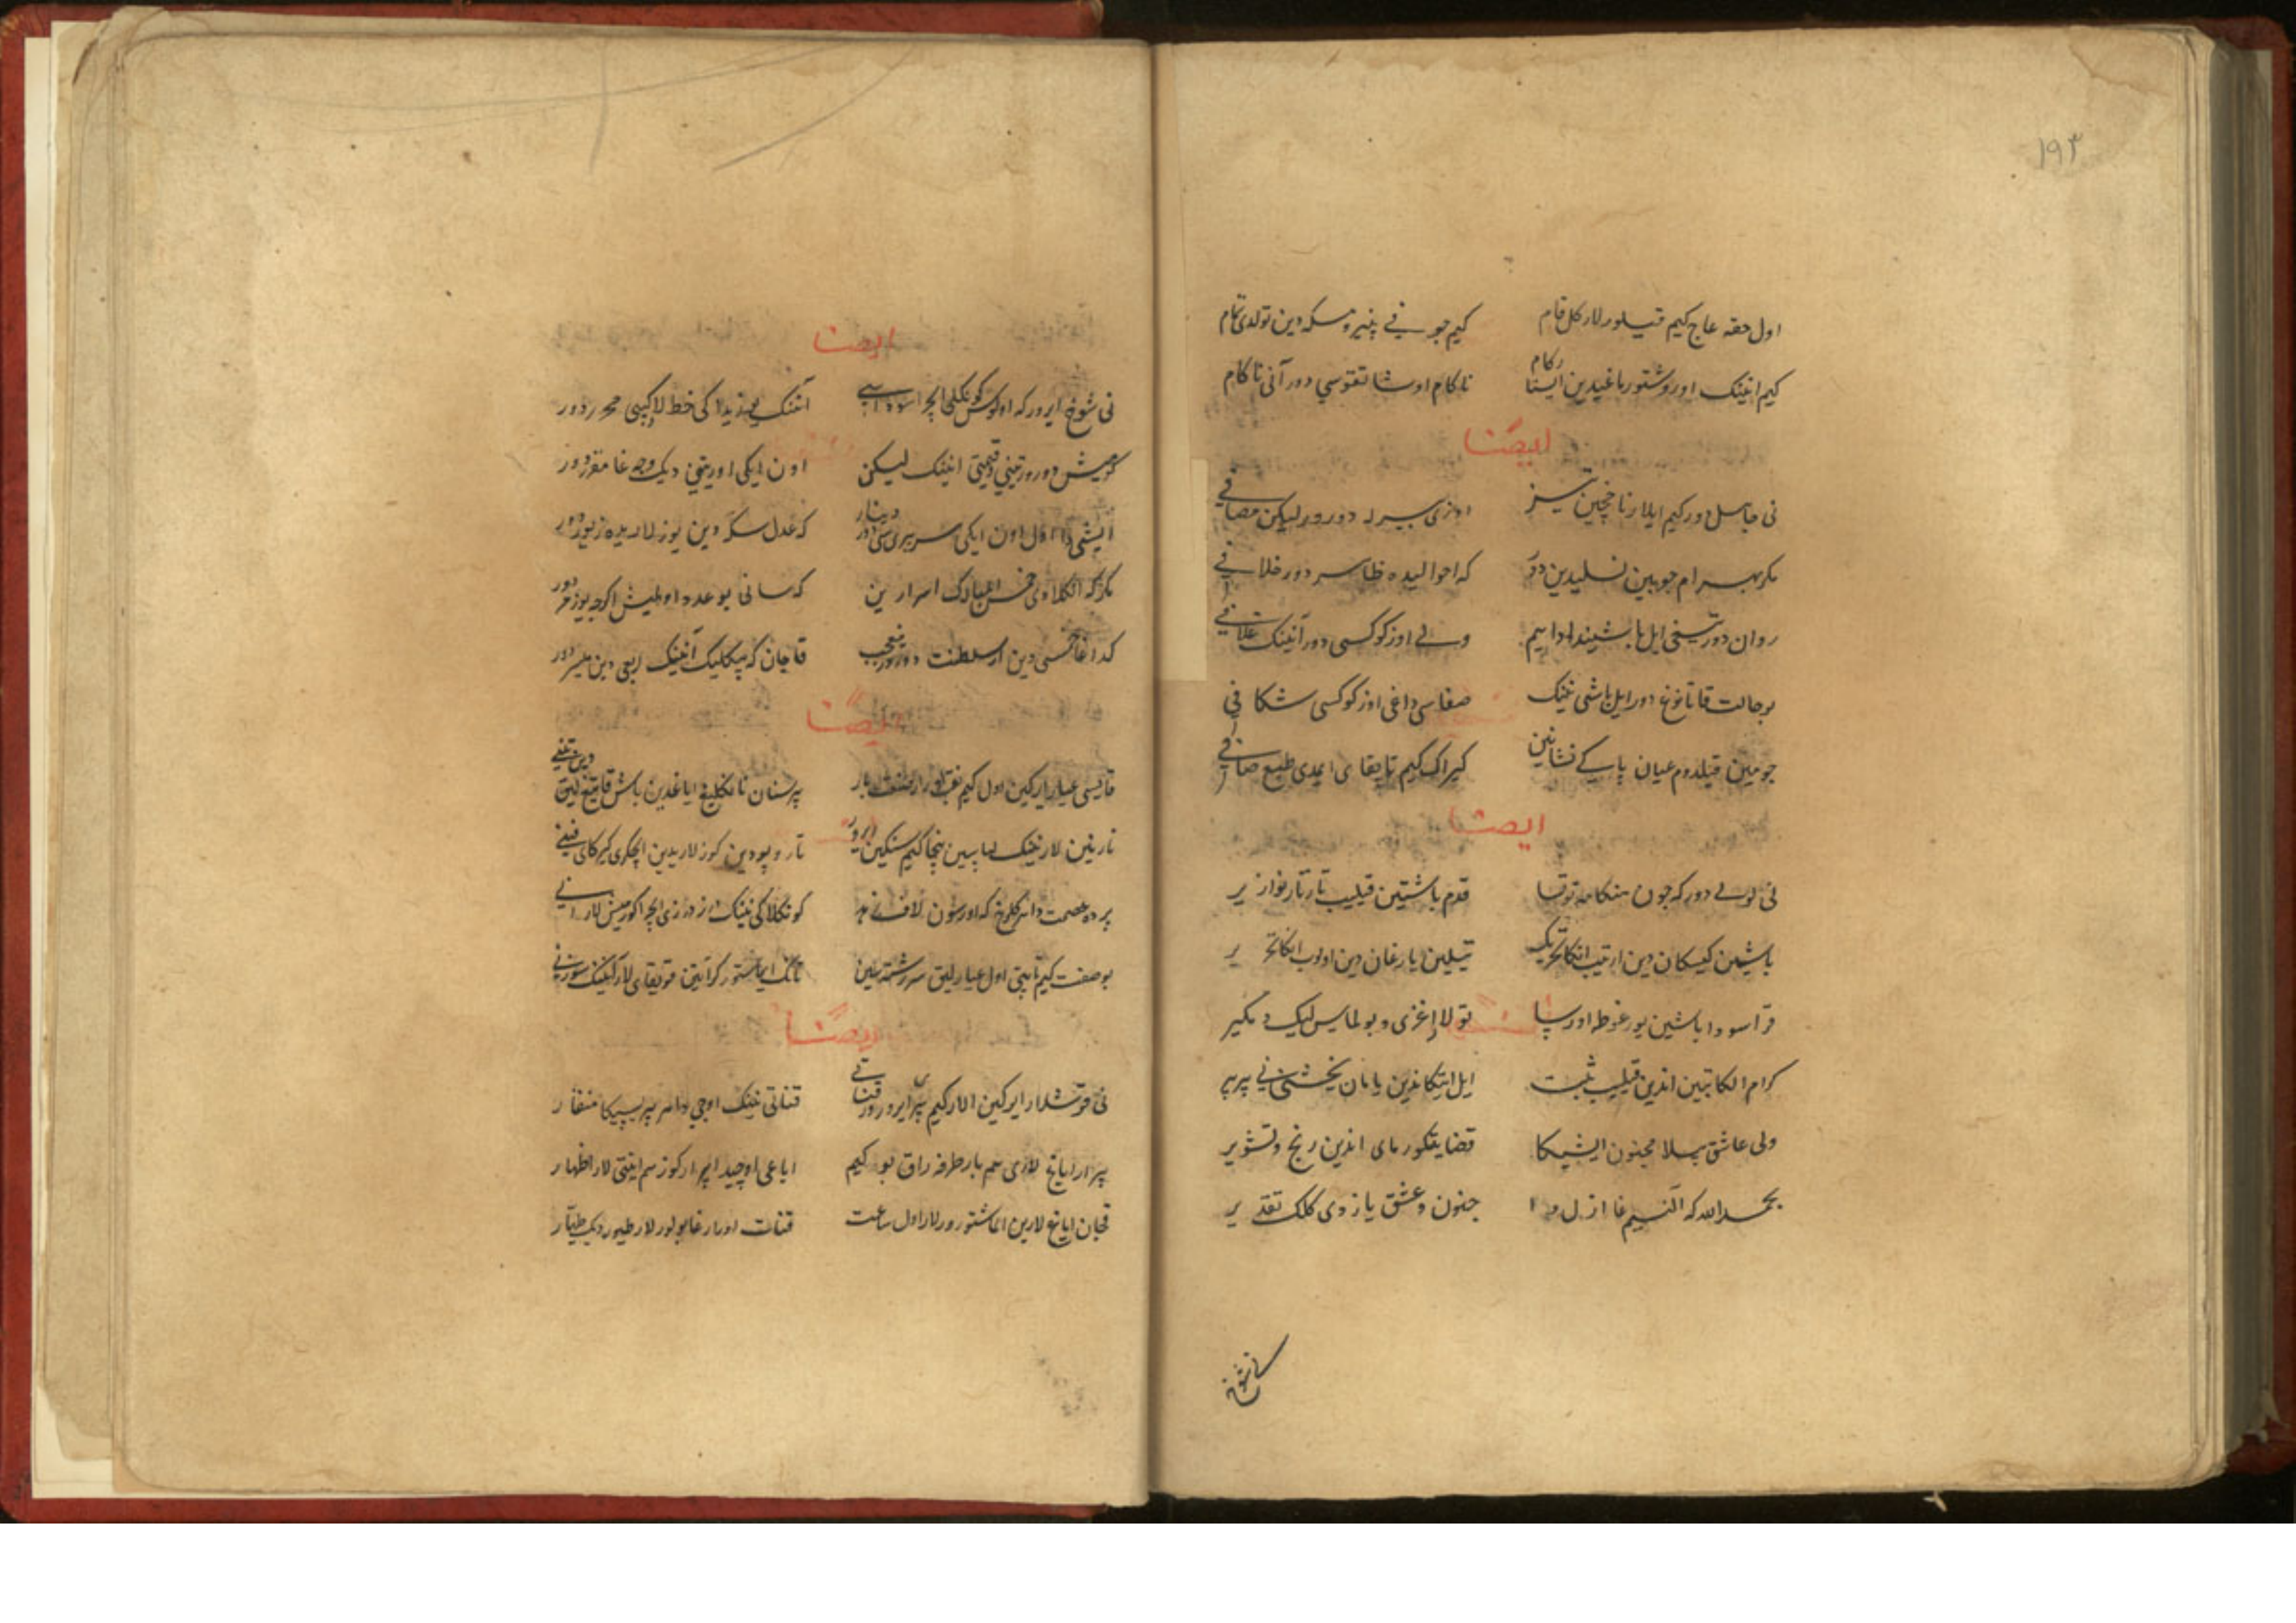 ۱۹۳
اول حقه عاج کیم قیلورلار کل قام کیم جوفی پنیر و مسکه دین تولدی تمام
کیم انینک اوروشتور باغیدین ایستار کام ناکام اوشاتقوسی دور آنی تا کام
ایضا
نی جاسل دور کیم ایلار ناخچین تیز اوزی بیرله دورور لیکن مصافی
مکر بهرام جوبین نسلیدین دور که احوالیده ظاهر دور خلافی
روان دور تیغی ایل باشیندا دایم ولی اوز کوکسی دور آنینک غلافی
بو حالت قا تانوغ دور ایل باشی نینک صفاسی داغی اوز کوکسی شکافی
جو مین قیلدوم عیان پاکی نشانین کیراک کیم تاپقای ایمدی طبع صافی
ایضا
نی لولی دور که جون هنکامه توقسا قدم باشتین قیلیب تارتار نوازیر
باشین کیسکان دین ارتیب انکا تحریک تیلین یارغان دین اولوب انکا تحریر
قراسودا باشین یور غوطه اورسا تولا اغزی و بولماس لیک دیکیر
کرام الکاتبین اندین قیلیب ثبت ایل ایتکاندین یامان یخشی نی بیر بیر
ولی عاشق بیلا مجنون ایشیکا قضا یتکورمای اندین رنج و تشویر
بحمدالله که آلنیم غا ازل دا جنون و عشق یازدی کلک تقدیر
ایضا
نی شوخ ایرور که اولوس کونکلی ایچرا سوداسی آنینک یوزیدا کی خط لار کیبی محرر دور
کومیش دورور تنی و قیمتی انینک لیکن اون ایکی اورتنی دیک وجه غا مقرر دور
ایشی دا اول اون ایکی سر بیری سی دینار دور که عدل سکه دین یوزلاریده زیور دور
مکر که انکلادی خمس المبارک اسرارین که سانی بو عدد اولمیش اکرچه یوز مر دور
کدا غا خمسی دین ار سلطنت دورور نی عجب قاچان که ییکلیک آنینک ربعی دین میسر دور
ایضا
قایسی عیار ایرکین اول کیم نقب اورار صنعت بار پرسنان نا تکلیغ ایاغدین باش قاتیغ لیق دین تنی
نازنین لار نینک لباسین نیچا کیم سنکین ایرور تار و پودین کوزلاریدین ایچکری کیرکای فنی
پرده عصمت دا هر کلرخ که اورسون لاف زهد کونکلاکی نینک درزی ایچرا کورمیش لار انی
بو صفت کیم تاپتی اول عیارلیق سررشته سین تانک ایماستور کر ایتیب قویقای لار آنینک سوزنی
ایضا
نی قوشلار ایرکین الار کیم بیر ایرورور قناتی قناتی نینک اوجی دا هر بیریسیکا منقار
بیرار ایاغ لاری هم بار طرفه راق بو کیم ایاغی اوچیدا ایچرا کوز هم ایتتی لار اظهار
قچان ایاغ لارین الماشتورورلار اول ساعت قنات اورارغا بولورلار طیور دیک طیار